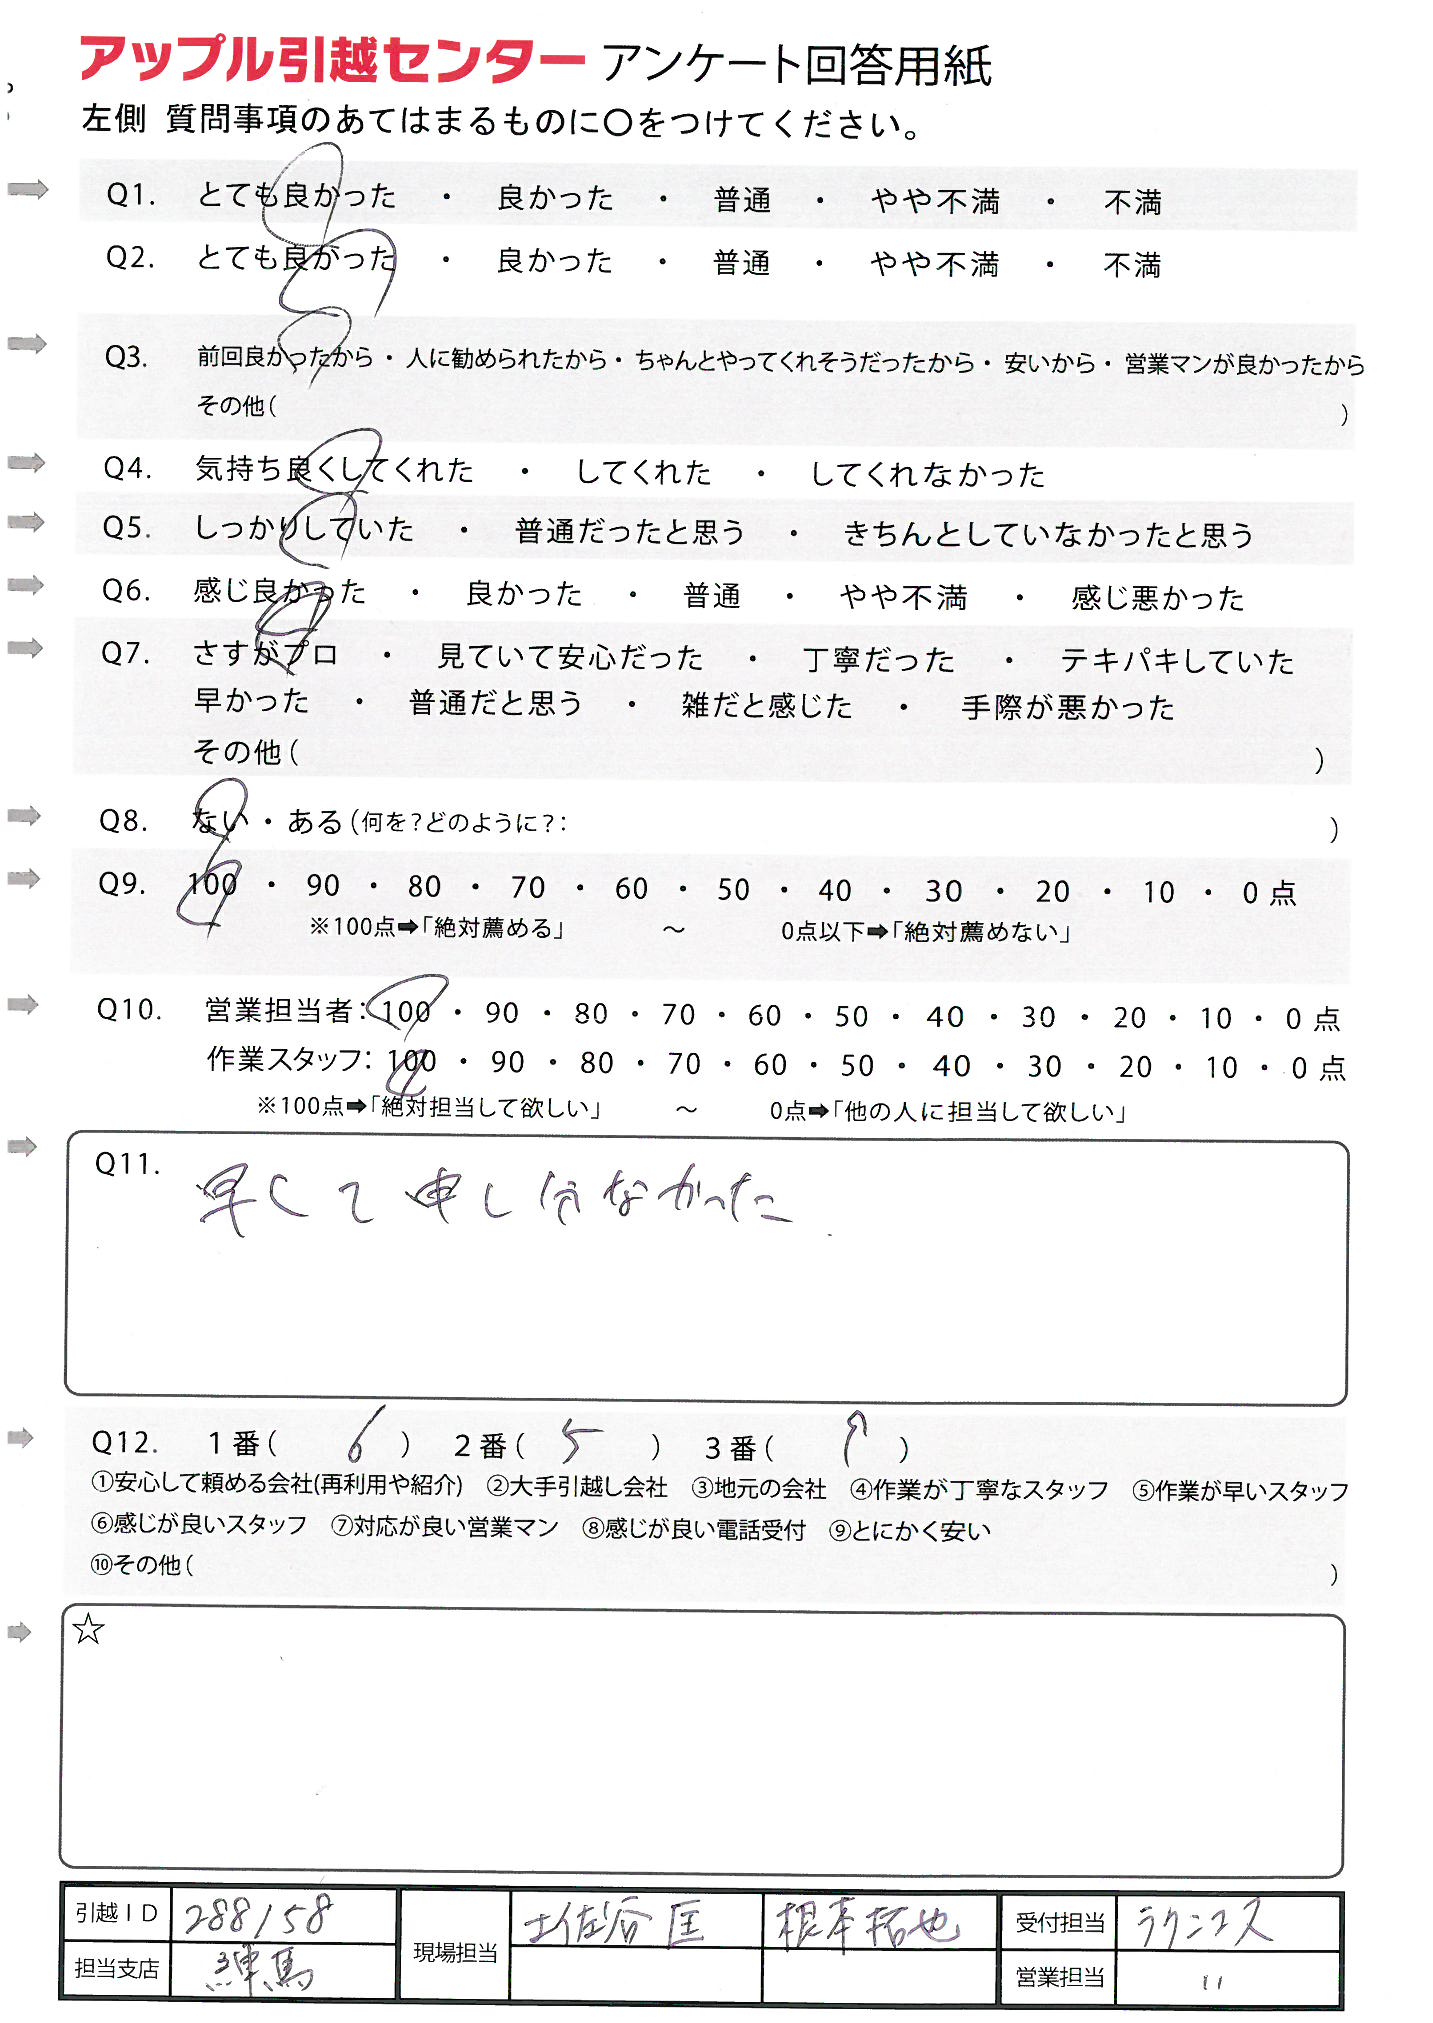 アップル引越センター アンケート回答用紙
左側 質問事項のあてはまるものに〇をつけてください。
Q1. とても良かった ・ 良かった ・ 普通 ・ やや不満 ・ 不満
Q2. とても良かった ・ 良かった ・ 普通 ・ やや不満 ・ 不満
Q3. 前回良かったから・ 人に勧められたから・ ちゃんとやってくれそうだったから・ 安いから・ 営業マンが良かったから
その他( )
Q4. 気持ち良くしてくれた ・ してくれた ・ してくれなかった
Q5. しっかりしていた ・ 普通だったと思う ・ きちんとしていなかったと思う
Q6. 感じ良かった ・ 良かった ・ 普通 ・ やや不満 ・ 感じ悪かった
Q7. さすがプロ ・ 見ていて安心だった ・ 丁寧だった ・ テキパキしていた
早かった ・ 普通だと思う ・ 雑だと感じた ・ 手際が悪かった
その他( )
Q8. ない・ある(何を?どのように?: )
Q9. 100 ・ 90 ・ 80 ・ 70 ・ 60 ・ 50 ・ 40 ・ 30 ・ 20 ・ 10 ・ 0 点
※100点➡「絶対薦める」 ～ 0点以下➡「絶対薦めない」
Q10. 営業担当者: 100 ・ 90 ・ 80 ・ 70 ・ 60 ・ 50 ・ 40 ・ 30 ・ 20 ・ 10 ・ 0 点
作業スタッフ: 100 ・ 90 ・ 80 ・ 70 ・ 60 ・ 50 ・ 40 ・ 30 ・ 20 ・ 10 ・ 0 点
※100点➡「絶対担当して欲しい」 ～ 0点➡「他の人に担当して欲しい」
Q11. 早くて申し分なかった
Q12. 1番( 6 ) 2番( 5 ) 3番( )
①安心して頼める会社(再利用や紹介) ②大手引越し会社 ③地元の会社 ④作業が丁寧なスタッフ ⑤作業が早いスタッフ
⑥感じが良いスタッフ ⑦対応が良い営業マン ⑧感じが良い電話受付 ⑨とにかく安い
⑩その他( )
☆
引越ID 288158 現場担当 土佐谷 匡 根本拓也 受付担当 ラクニコス
担当支店 練馬 営業担当 〃